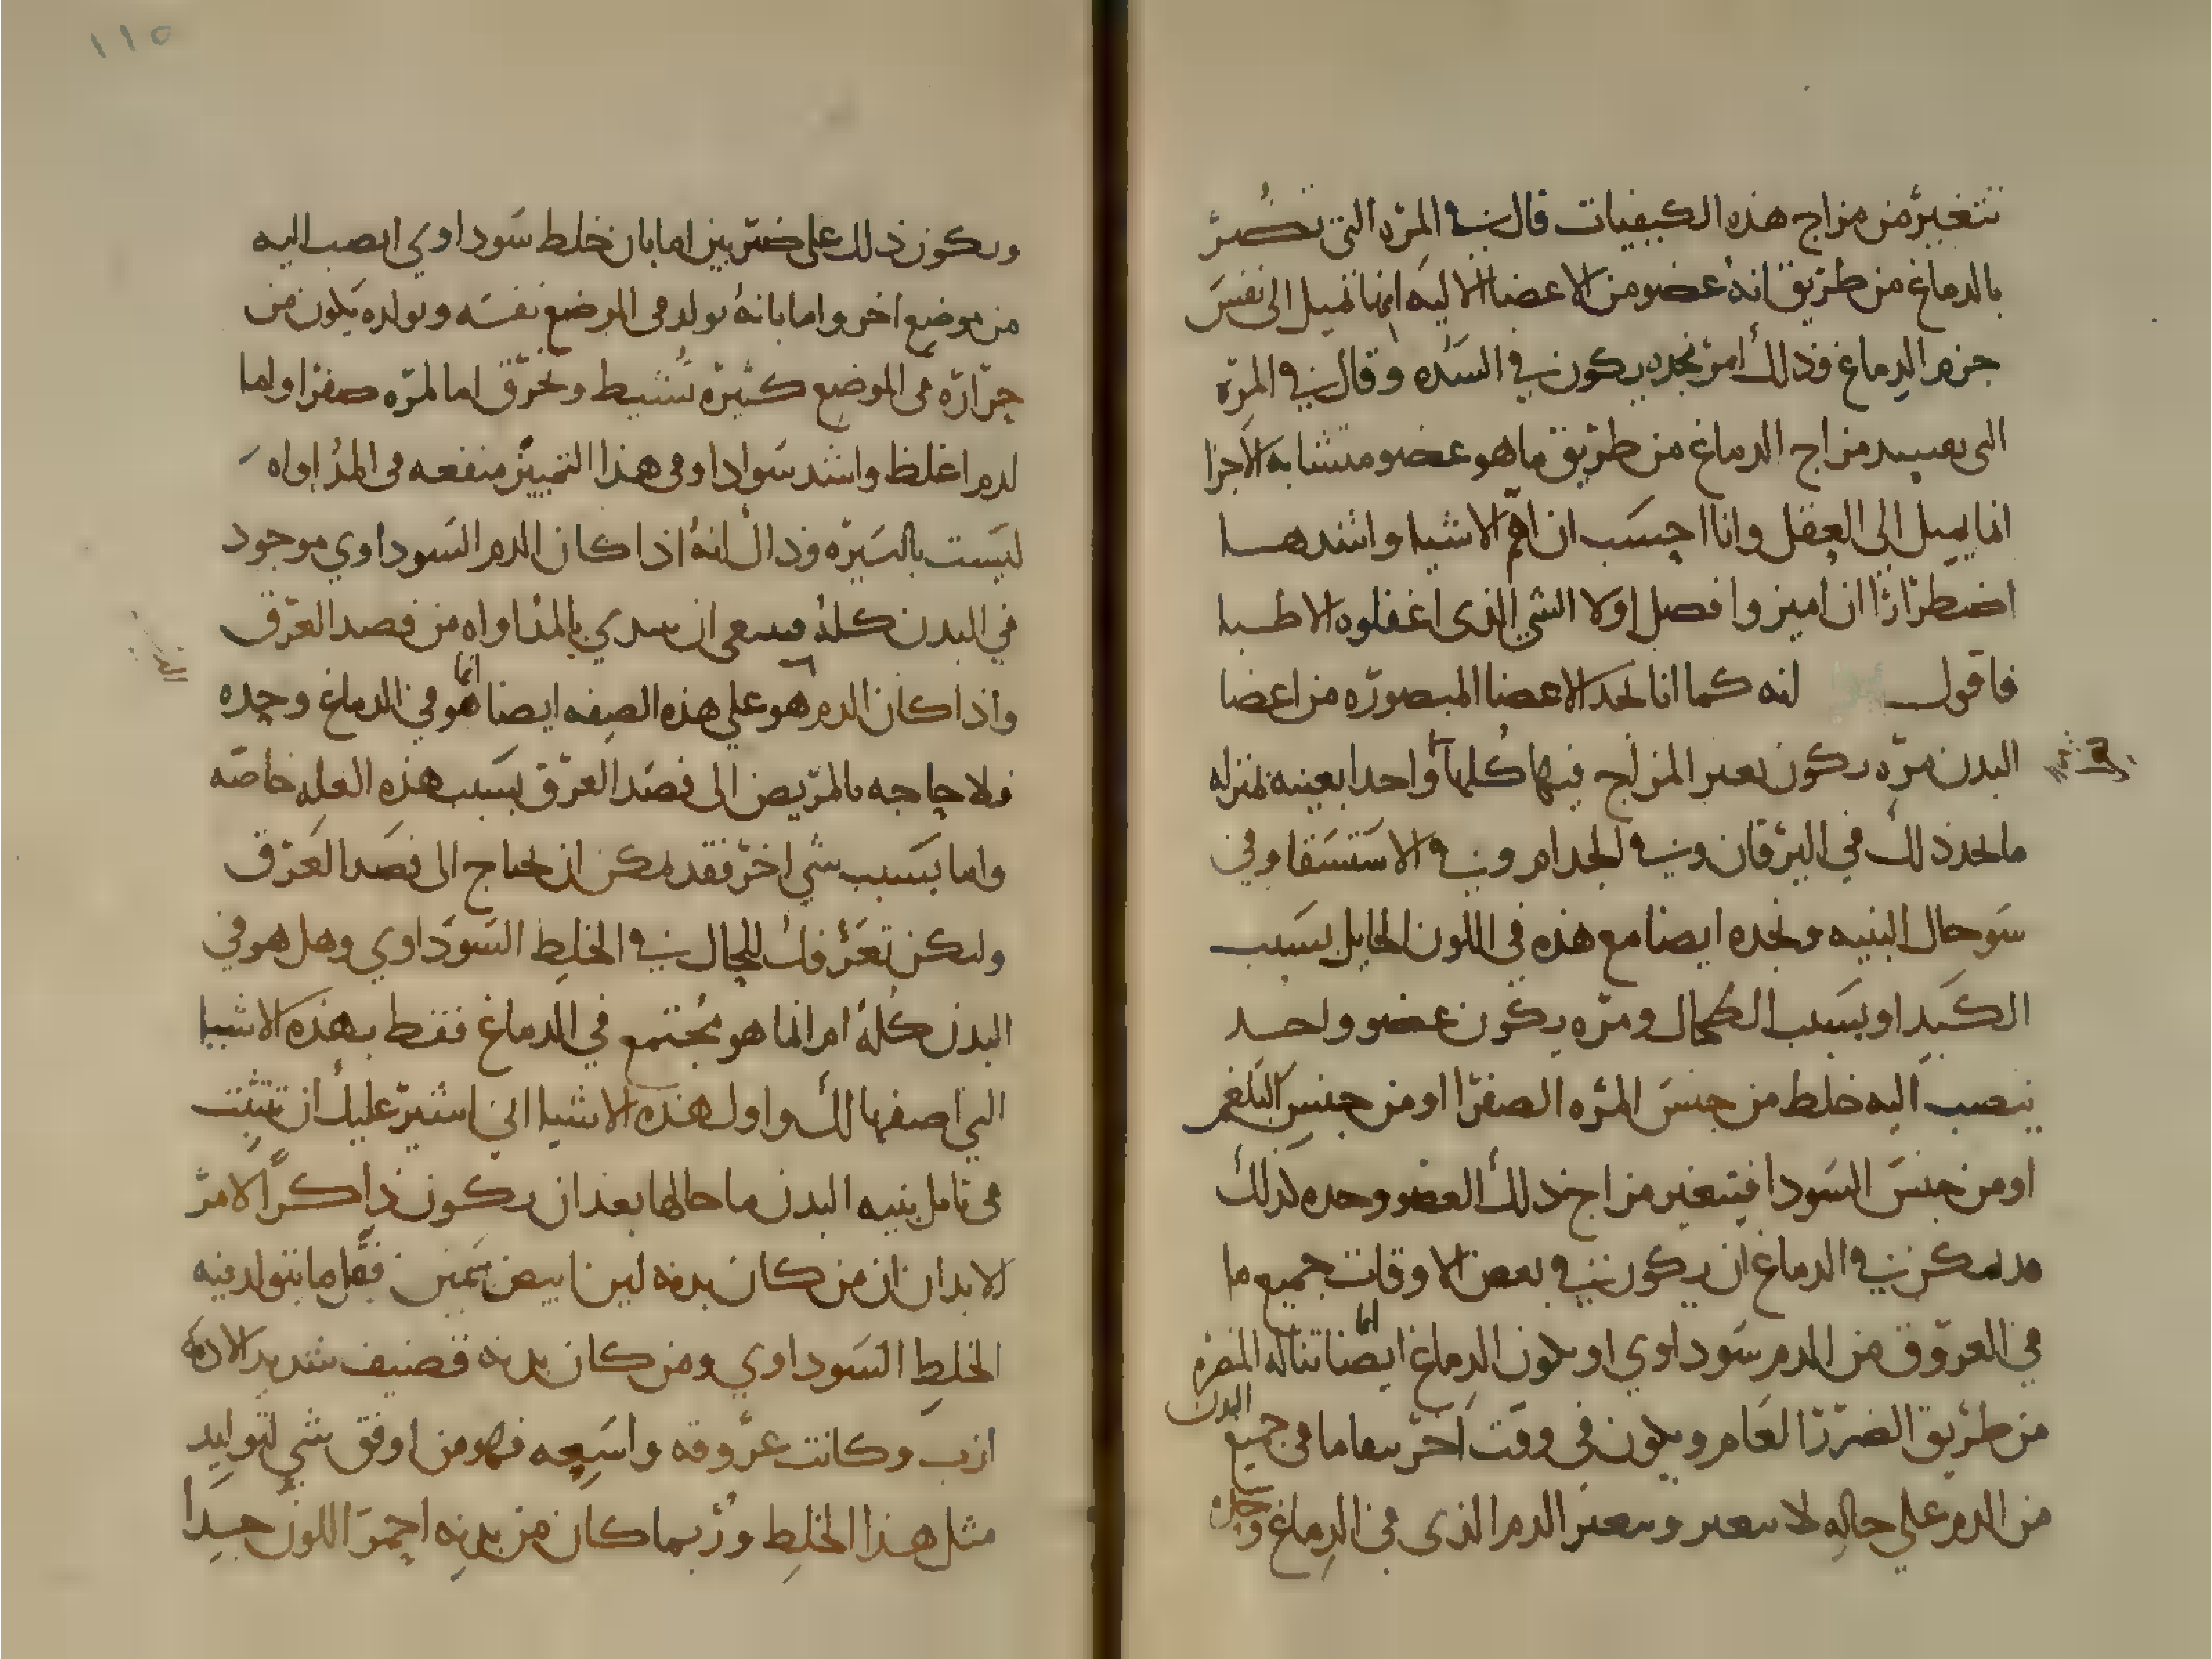 تتغير من مزاج هذه الكيفيات قال في المره التي تضر
بالدماغ من طريق انه عضو من الاعضا الاليه انها تميل الى نفس
جرم الدماغ وذلك امر نجده يكون في السده وقال في المرة
التى مزاج الدماغ من طريق ما هو عضو متشابه الاجزا
انها تميل الى العقل وانا احسب ان اهم الاشيا واشدها
اضطرارا ان اميز وافصل اولا الشي الذى اغفلوه الاطبا
فاقول انه كما انا نجد الاعضا المبصوره من اعضا
البدن مره يكون تغير المزاج فيها كلها واحدا بعينه بمنزله
ما نجد ذلك في اليرقان وفي الجدام وفي الاستسقا وفي
سو حال البنيه ونجده ايضا مع هذه في اللون الحايل بسبب
الكبد او بسبب الطحال ومره يكون عضو واحد
ينصب اليه خلط من جنس المره الصفرا او من جنس البلغم
او من جنس السودا فيتغير مزاج ذلك العضو وحده كذلك
يمكن في الدماغ ان يكون في بعض الاوقات جميع ما
في العروق من الدم سوداوي او يكون الدماغ ايضا انما تناله المضره
من طريق الضرر العام ويكون في وقت اخر ما فى جميع البدن
من الدم علي حاله لا يتغير ويتغير الدم الذى في الدماغ وحده
١١٥
ويكون ذلك على ضربين اما بان خلط سوداوي انصب اليه
من موضع اخر واما بانه تولد فى الموضع نفسه وتولده يكون من
حراره فى الموضع كثيره تشيط وتحرق اما لمره صفرا واما
لدم اغلظ واشد سوادا وفى هذا التمييز منفعه فى المداواه
ليست باليسيره وذاك انه اذا كان الدم السوداوي موجود
في البدن كله ان بالمداواه من فصد العرق
واذا كان الدم هو علي هذه الصفه ايضا انما هو في الدماغ وحده
فلا حاجه بالمريض الى فصد العرق بسبب هذه العله خاصه
واما بسبب شي اخر فقد يمكن ان يحتاج الى فصد العرق
وليكن تعرفك للحال في الخلط السوداوي وهل هو في
البدن كله ام انما هو مجتمع في الدماغ فقط بهذه الاشيا
التي اصفها لك واول هذه الاشيا اني اشير عليك ان تتثبت
فى تامل بنيه البدن ما حالها بعد ان يكون ذاكرا لامر
الابدان ان من كان بدنه لين ابيض سمين فقل ما يتولد فيه
الخلط السوداوي ومن كان بدنه قضيف شديد الادمه
ازب وكانت عروقه واسعه فهو من اوفق شي لتوليد
مثل هذا الخلط وربما كان من بدنه احمر اللون جدا